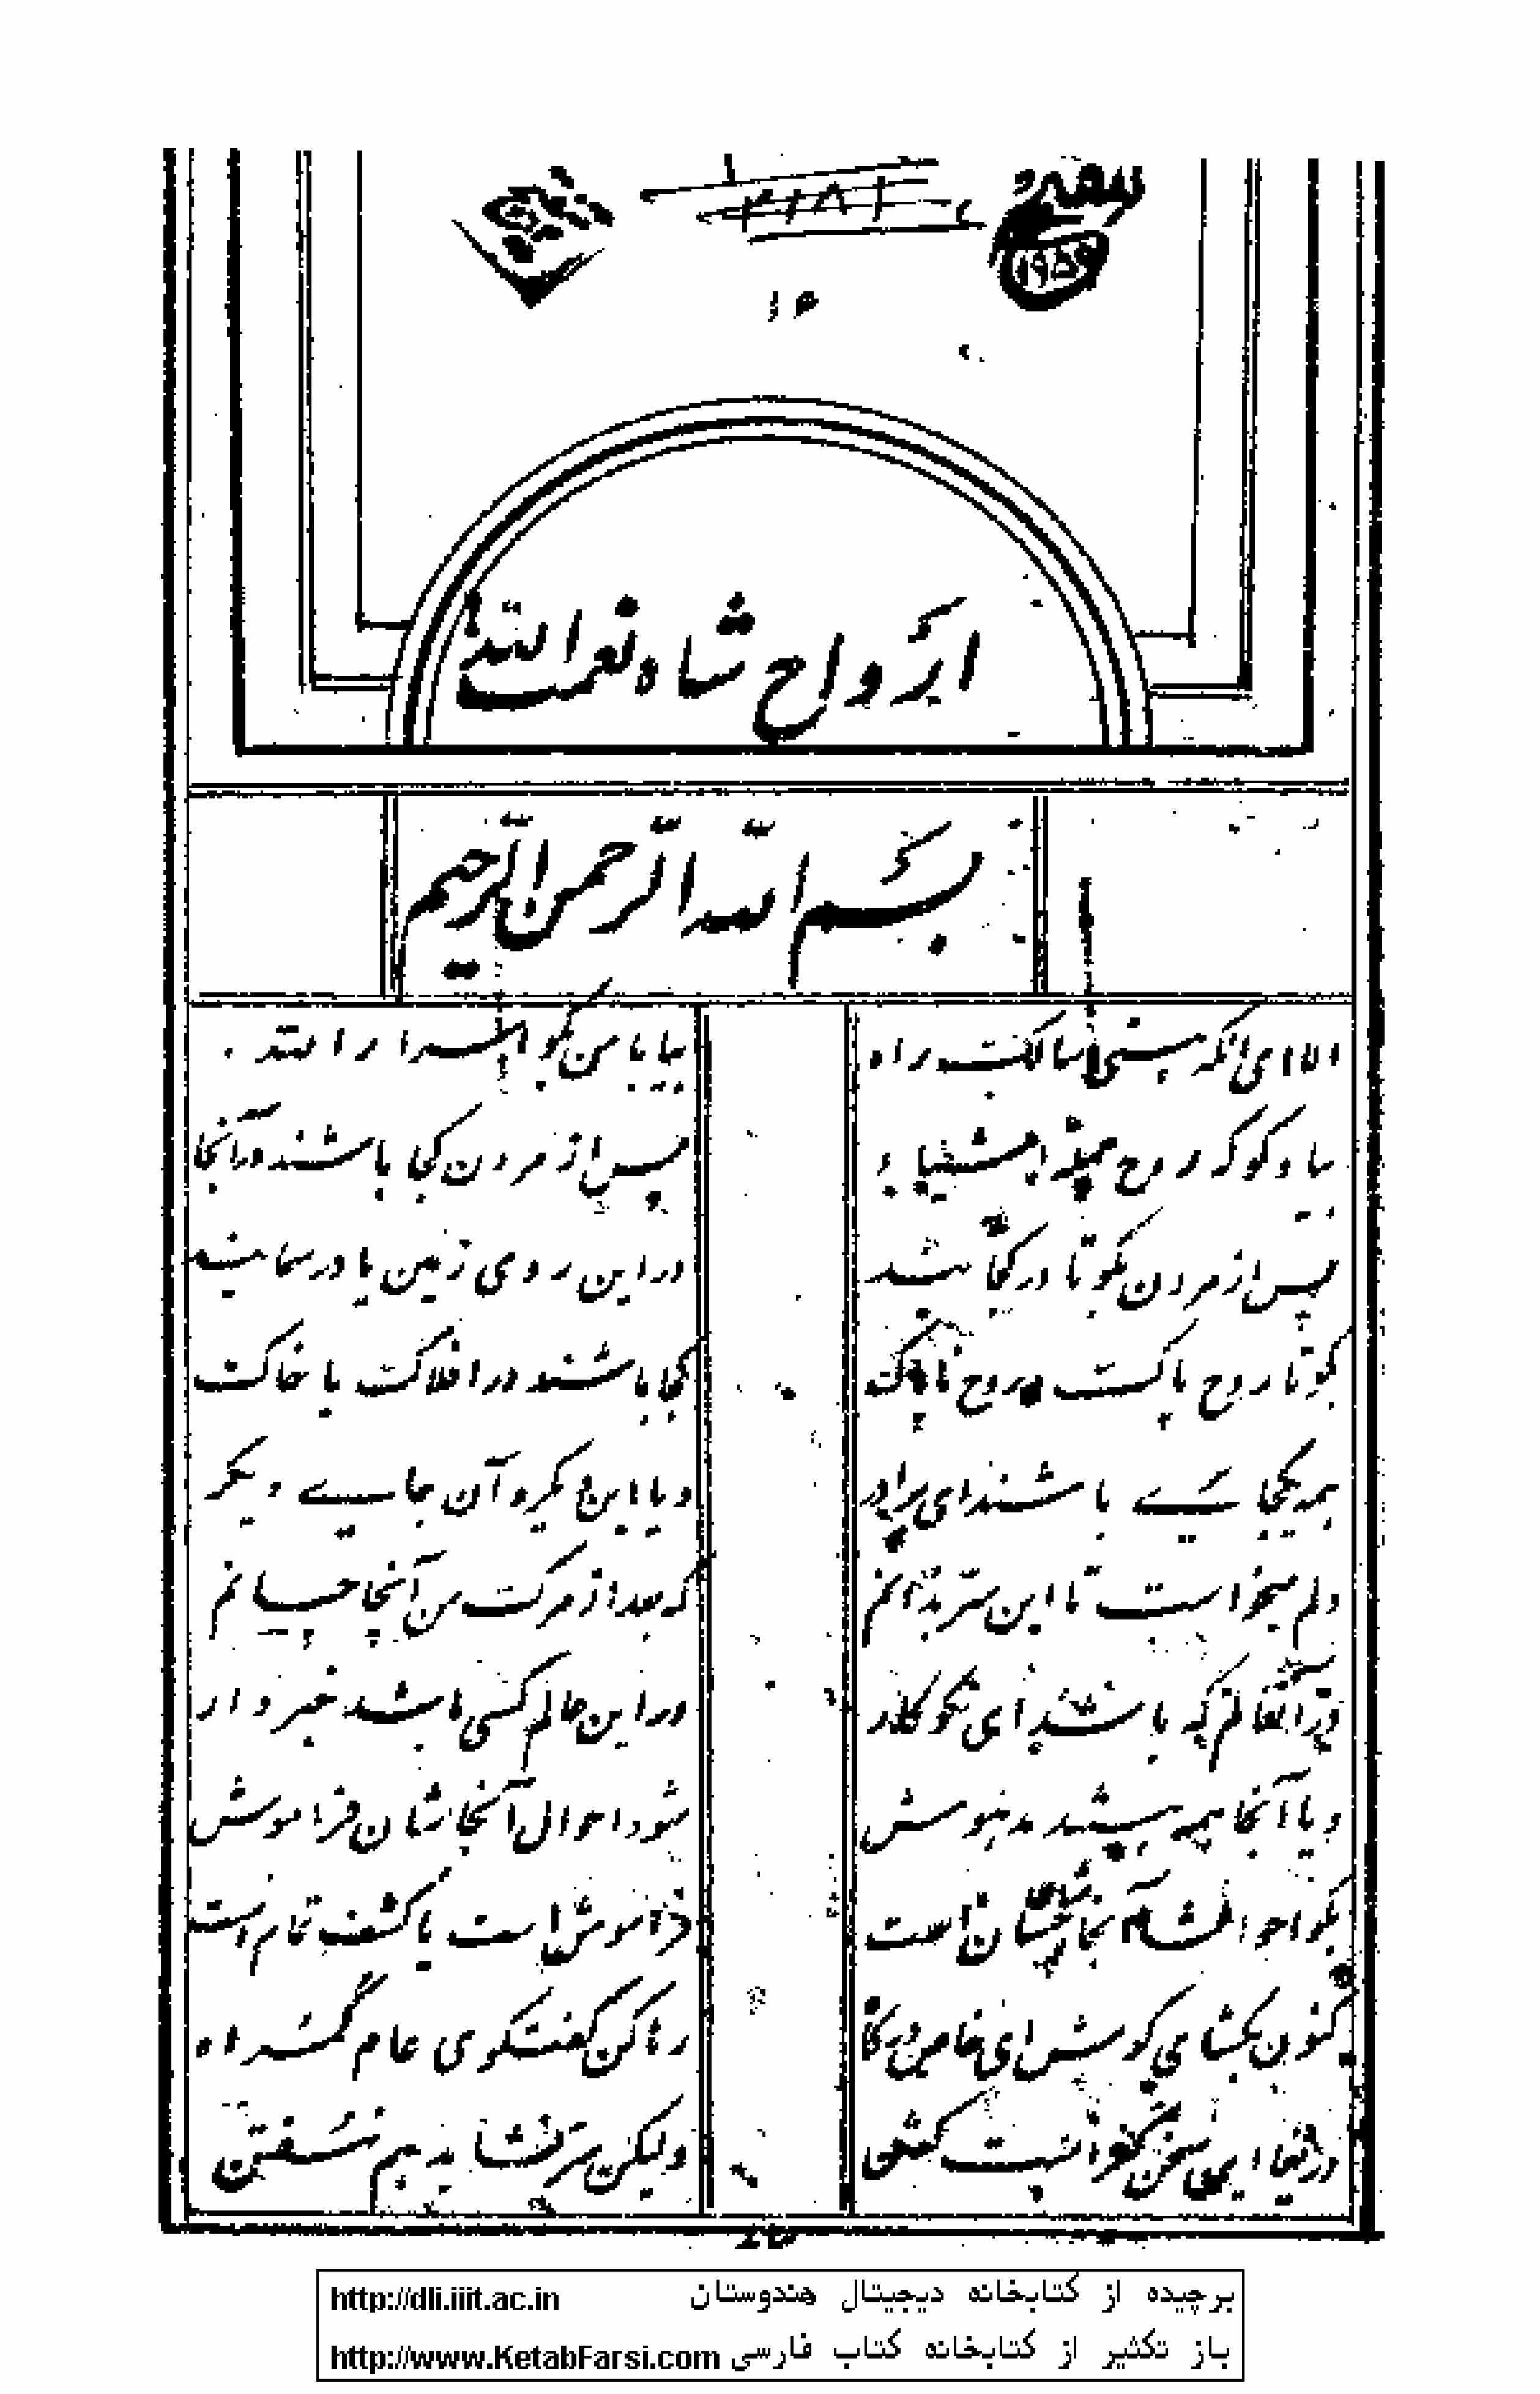 ۲۱۸۱
۱۹۵۹
۱۴
ابر واح شاه نعمت الله
بسم الله الرحمن الرحیم
الا ای آنکه هستی سالک راه
بیا با من بگو اسرار الله
بیا و گو که روح جمله اشیاء
پس از مردن کجا باشند در آنجا
پس از مردن بگو تا در کجا شد
در این روی زمین یا در سما شد
بگو تا روح پاک و روح ناپاک
کجا باشند در افلاک یا خاک
همه یکجای باشند ای برادر
و یا این یک و آن جای دیگر
دلم میخواست تا این سر بدانم
که بعد از مرگ من آنجا چسانم
در آنعالم که باشد ای نکو کار
در این عالم کسی باشد خبردار
و یا آنجا همه بیهوش
شود احوال آنجاشان فراموش
بگو احوالشان آنجا چسان است
فراموش است یا کشف تمام است
کنون بگشای گوش ای خاص درگاه
رها کن گفتگوی عام گمراه
دریغا این سخن نتوانست گفتن
ولیکن سر نشاید هم نهفتن
برچیده از کتابخانه دیجیتال هندوستان http://dli.iiit.ac.in
باز تکثیر از کتابخانه کتاب فارسی http://www.KetabFarsi.com